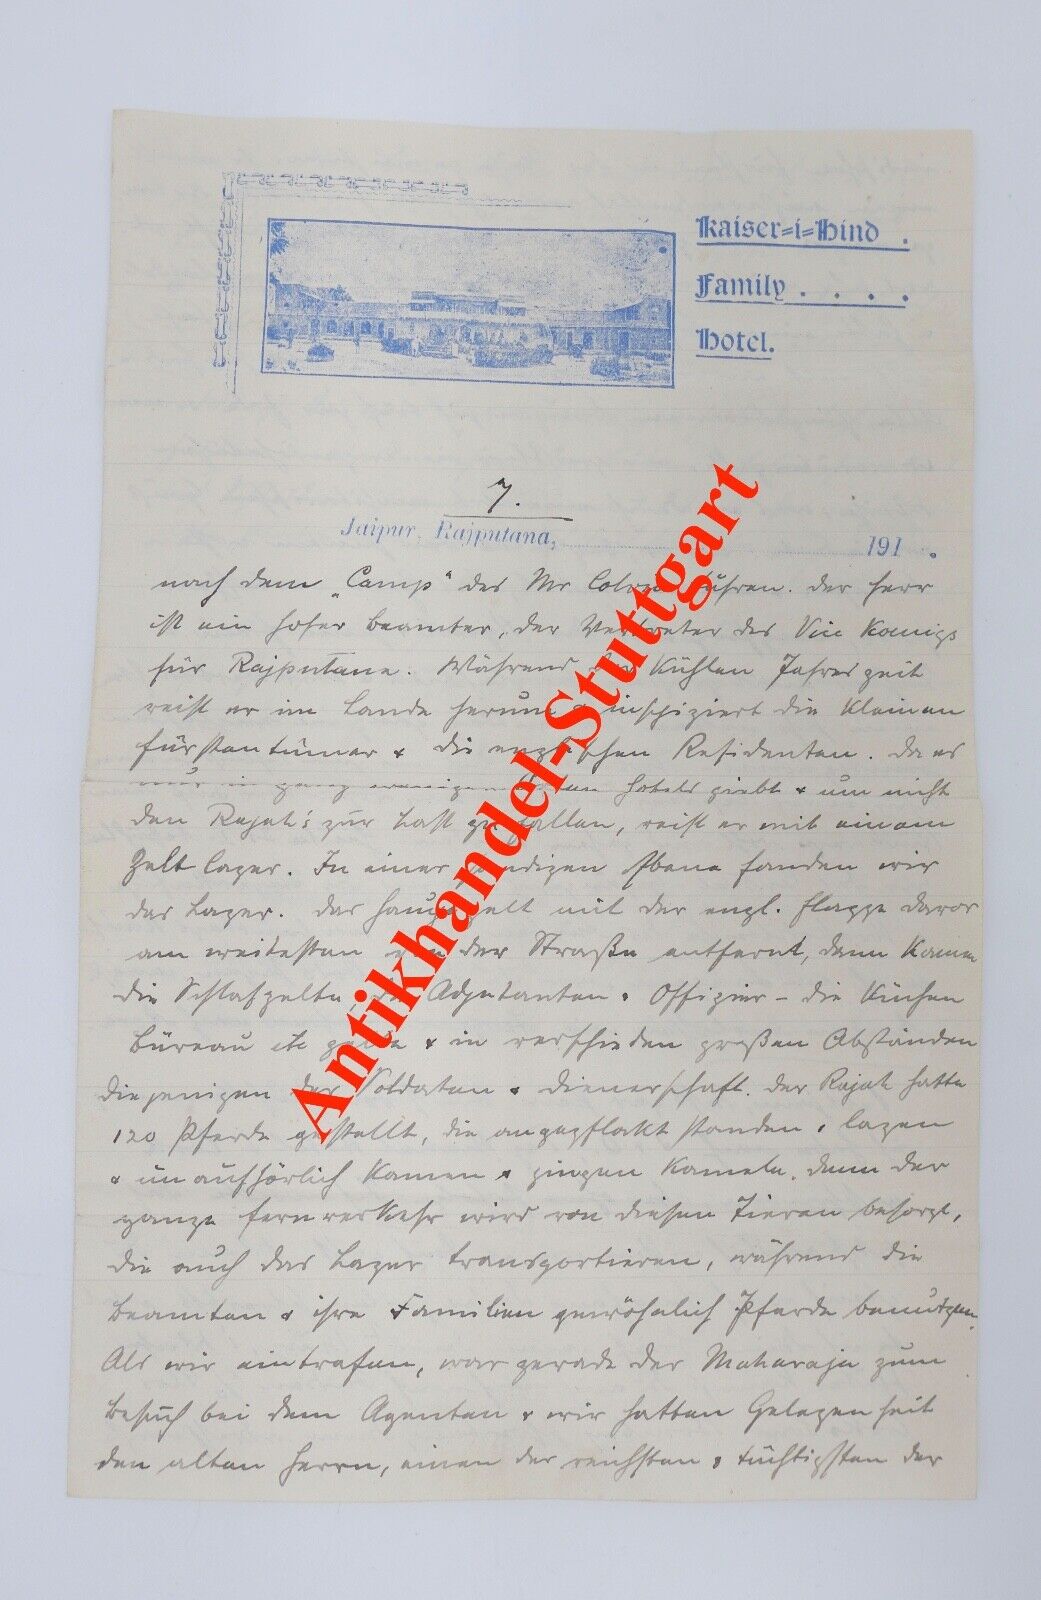 Kaiser=i=Hind .
Family . . . .
Hotel.
7.
Jaipur, Rajputana, 191 .
nach dem „Camp" des Mr führen. der Herr
ist ein hoher Beamter, der Vertreter des Vice Koenigs
für Rajputana. Während der Kühlen Jahreszeit
reist er im Lande herum & inspiziert die Kleinen
Fürstentümer & die englischen Residenten. Da es
nur in ganz wenigen Orten Hotels giebt & um nicht
den Rajah's zur Last zu fallen, reist er mit einem
Zeltlager. In einer sandigen Ebene fanden wir
das Lager. Das Hauptzelt mit der engl. Flagge davor
am weitesten von der Straße entfernt, dann Kamen
die Schlafzelte, die Adjutanten & Offizier – die Küchen
Büreau etc & in verschieden großen Abständen
diejenigen der Soldaten & Dienerschaft. Der Rajah hatte
120 Pferde gestellt, die angepflokt standen & lagen
& unaufhörlich Kamen & gingen Kamele, denn der
ganze Fernverkehr wird von diesen Tieren besorgt,
die auch das Lager transportieren, während die
Beamten & ihre Familien gewöhnlich Pferde benutzen.
Als wir eintrafen, war gerade der Maharaja zum
Besuch bei dem Agenten & wir hatten Gelegenheit
den alten Herrn, einen der reichsten & tüchtigsten der
Antikhandel-Stuttgart